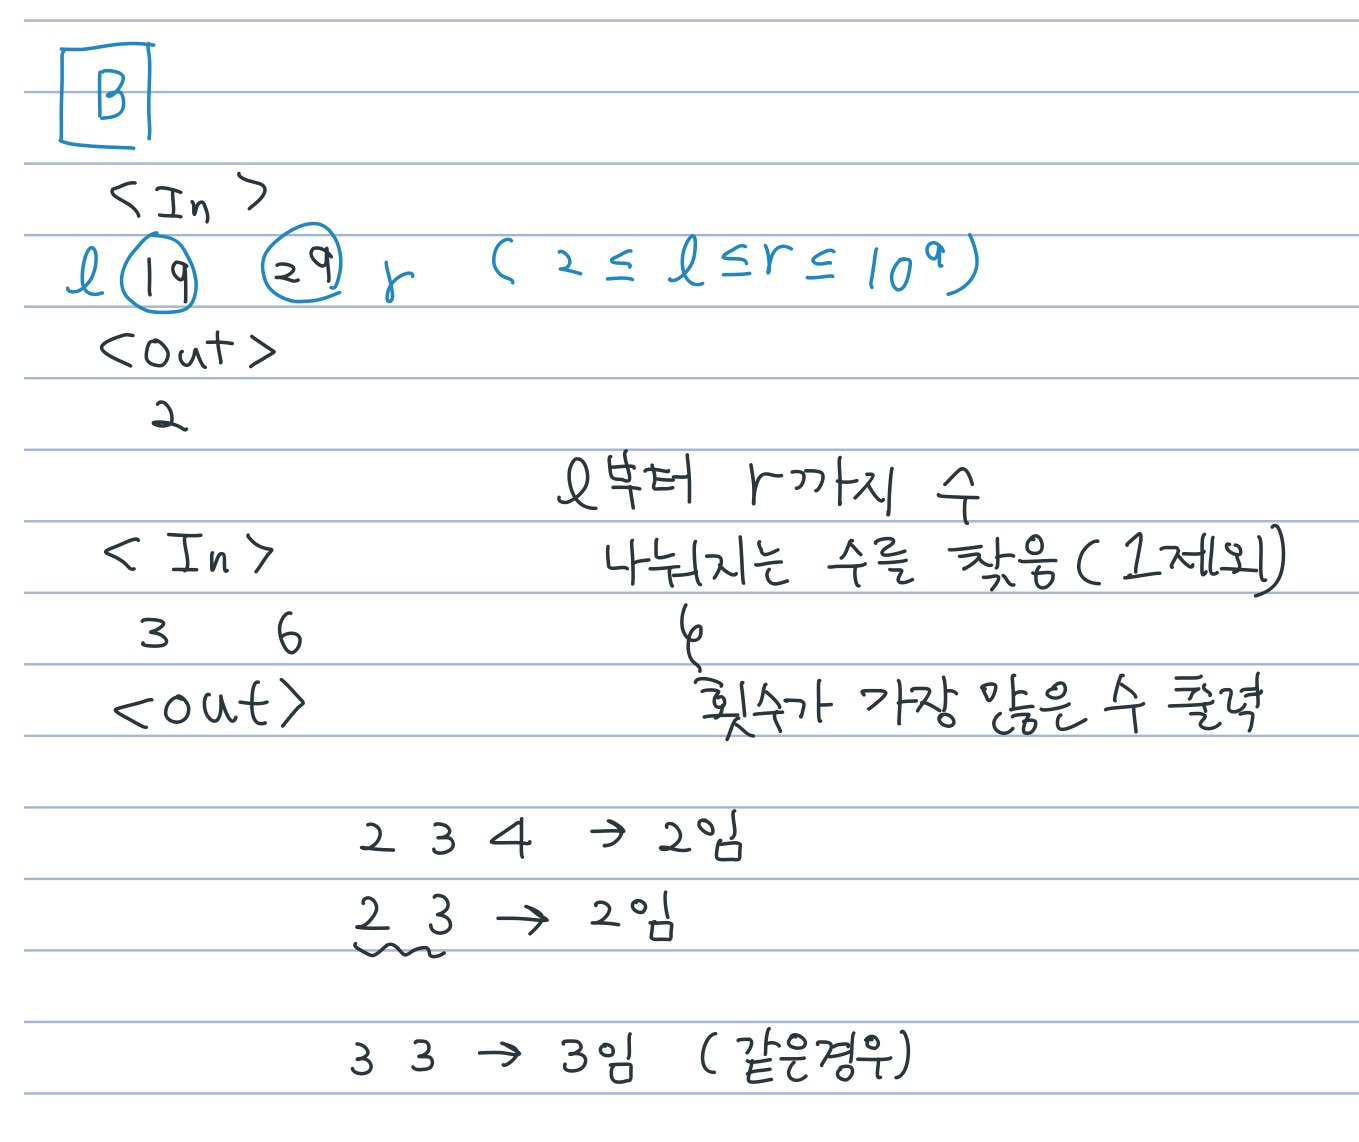 B
<In>
l 19 29 r ( 2 ≤ l ≤ r ≤ 10⁹ )
<out>
2
l부터 r까지 수
나눠지는 수를 찾음 ( 1제외)
횟수가 가장 많은 수 출력
<In>
3 6
<out>
2 3 4 → 2임
2 3 → 2임
3 3 → 3임 ( 같은경우)